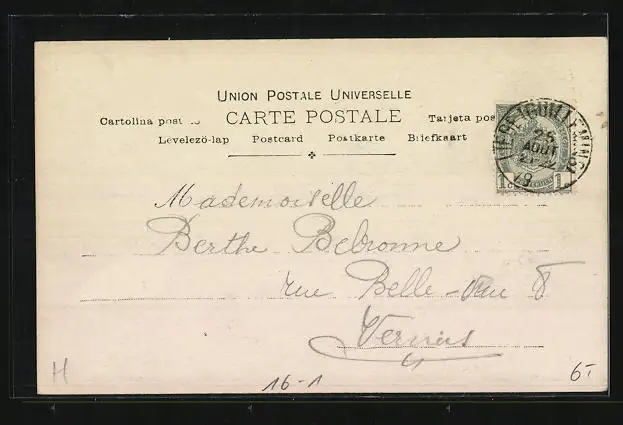 UNION POSTALE UNIVERSELLE
Cartolina post CARTE POSTALE Tarjeta pos
Levelezö-lap Postcard Postkarte Briefkaart
26
AOUT
1 1
Mademoiselle
Berthe
rue Belle-Vue 8
H
16-1
6.-